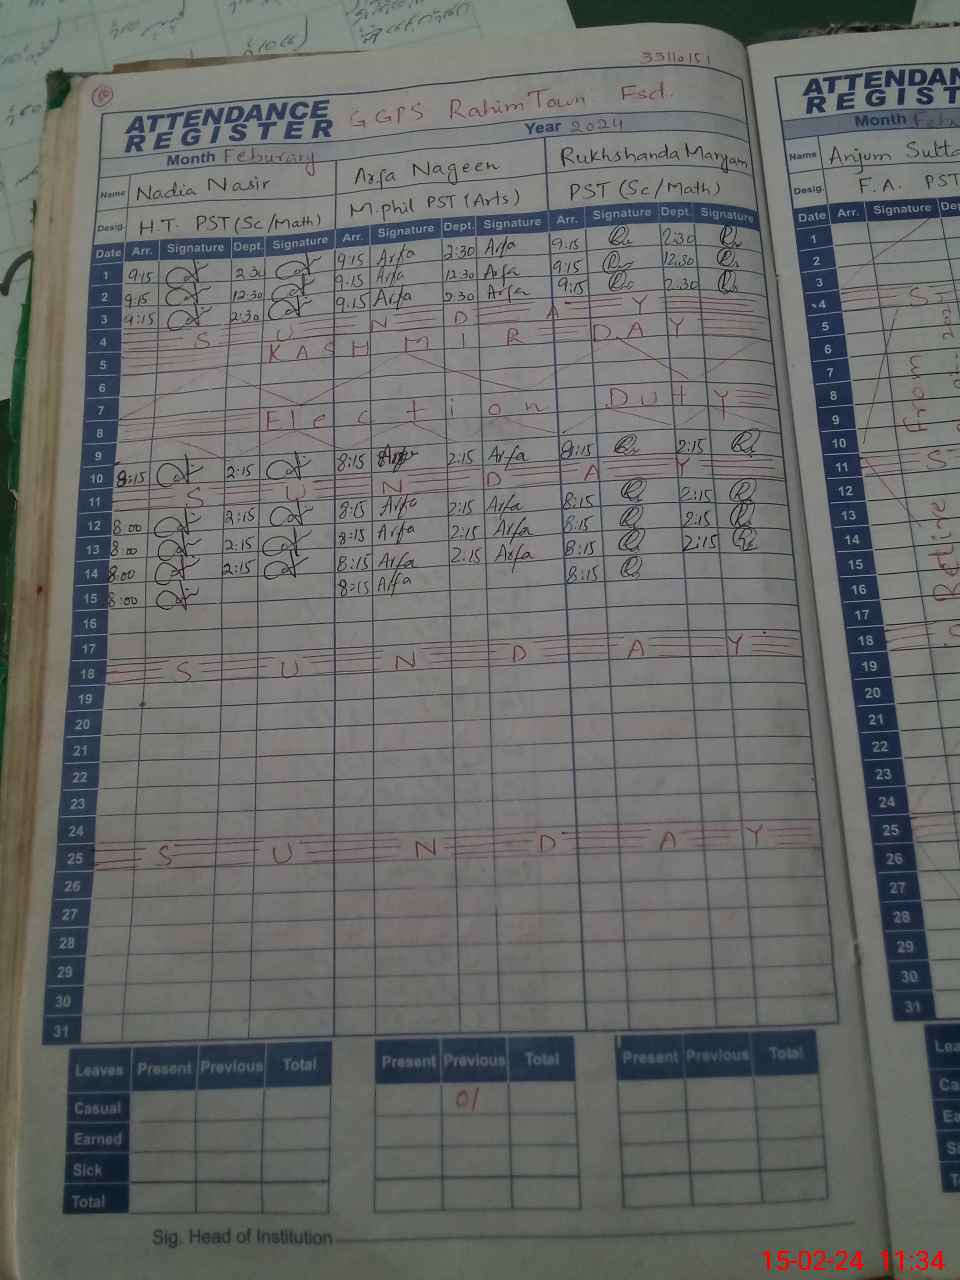 33110151
ATTENDANCE REGISTER GGPS Rahim Town Fsd.
Month Feburary Year 2024
Name Nadia Nasir Arfa Nageen Rukhshanda Maryam
Desig. H.T. PST(Sc/Math) M.phil PST (Arts) PST (Sc/Math)
Date Arr. Signature Dept. Signature Arr. Signature Dept. Signature Arr. Signature Dept. Signature
1 9:15 2:30 9:15 Arfa 2:30 Arfa 9:15 2:30
2 9:15 12:30 9:15 Arfa 12:30 Arfa 9:15 12:30
3 9:15 2:30 9:15 Arfa 2:30 Arfa 9:15 2:30
4 S U N D A Y
5 KASHMIR DAY
6
7
8 Election Duty
9
10 8:15 2:15 8:15 Arfa 2:15 Arfa 8:15 2:15
11 S U N D A Y
12 8:00 2:15 8:15 Arfa 2:15 Arfa 8:15 2:15
13 8:00 2:15 8:15 Arfa 2:15 Arfa 8:15 2:15
14 8:00 2:15 8:15 Arfa 2:15 Arfa 8:15 2:15
15 8:00 8:15 Arfa 8:15
16
17
18 S U N D A Y
19
20
21
22
23
24
25 S U N D A Y
26
27
28
29
30
31
Leaves Present Previous Total Present Previous Total Present Previous Total
Casual 01
Earned
Sick
Total
Sig. Head of Institution
ATTENDAN
REGIST
Month
Name Anjum Sulta
Desig. F.A. PST
Date Arr. Signature De
1
2
3
4 S
5
6
7
8
9
10
From
11 S
12
13
14
15
16
Retire
17
18 S
19
20
21
22
23
24
25
26
27
28
29
30
31
Lea
Ca
Ea
Si
T
15-02-24 11:34